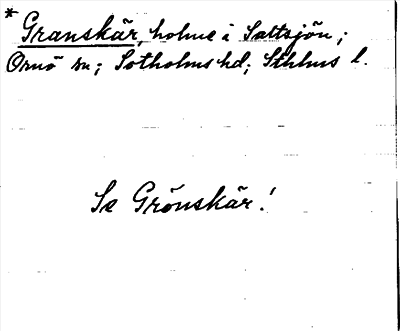 * Granskär, holme i Saltsjön;
Ornö sn; Sotholms hd; Sthlms l.
Se Grönskär!